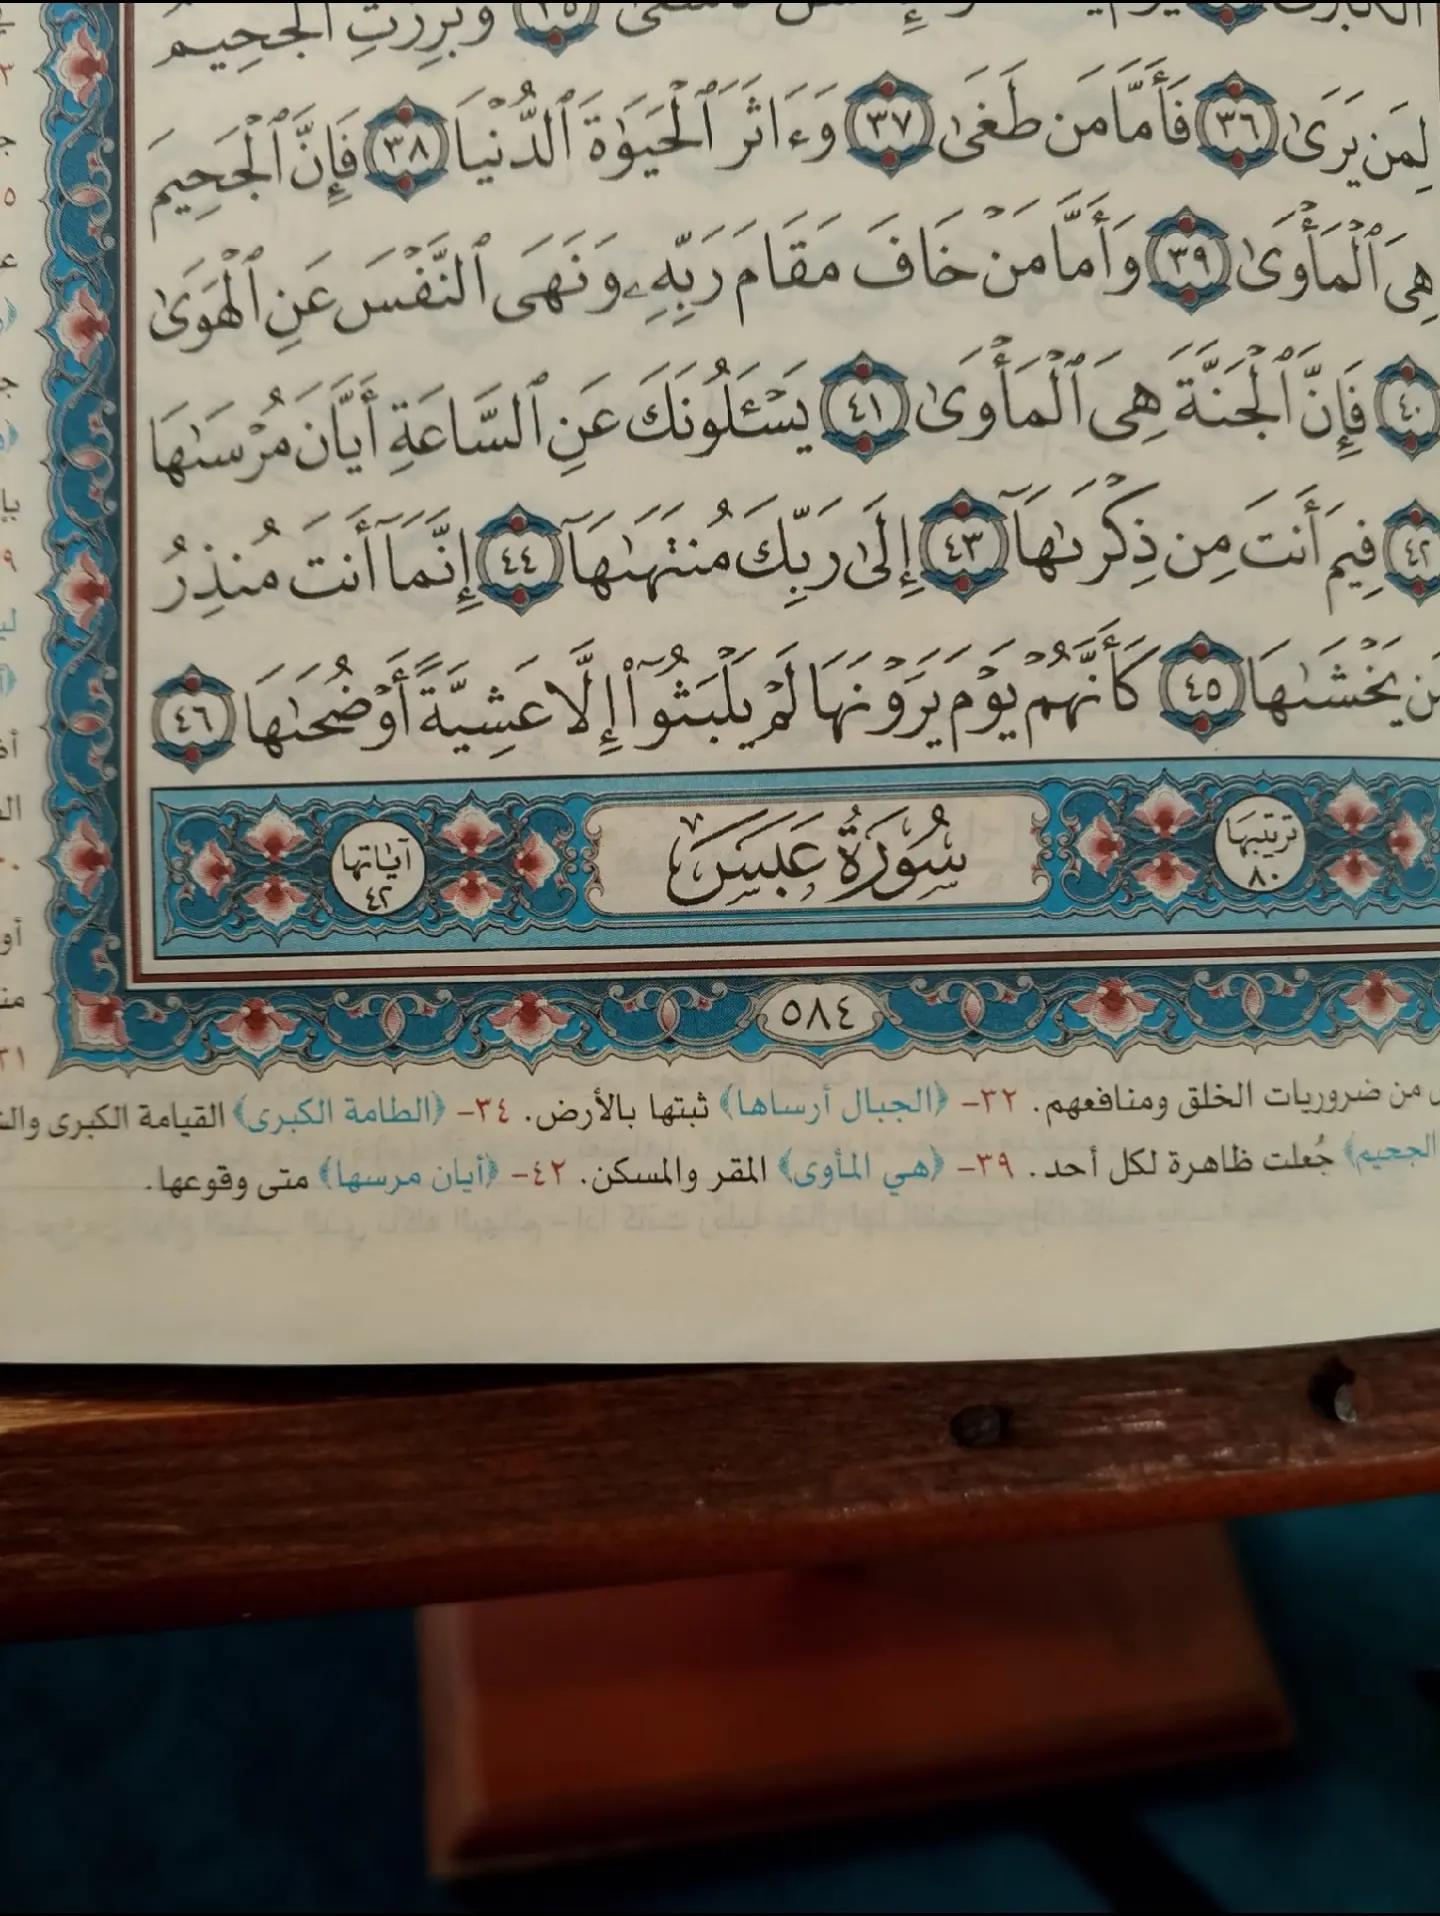 وَبُرِّزَتِ ٱلْجَحِيمُ
لِمَن يَرَىٰ ٣٦ فَأَمَّا مَن طَغَىٰ ٣٧ وَءَاثَرَ ٱلْحَيَوٰةَ ٱلدُّنْيَا ٣٨ فَإِنَّ ٱلْجَحِيمَ
هِىَ ٱلْمَأْوَىٰ ٣٩ وَأَمَّا مَنْ خَافَ مَقَامَ رَبِّهِۦ وَنَهَى ٱلنَّفْسَ عَنِ ٱلْهَوَىٰ
٤٠ فَإِنَّ ٱلْجَنَّةَ هِىَ ٱلْمَأْوَىٰ ٤١ يَسْـَٔلُونَكَ عَنِ ٱلسَّاعَةِ أَيَّانَ مُرْسَىٰهَا
٤٢ فِيمَ أَنتَ مِن ذِكْرَىٰهَآ ٤٣ إِلَىٰ رَبِّكَ مُنتَهَىٰهَآ ٤٤ إِنَّمَآ أَنتَ مُنذِرُ
يَخْشَىٰهَا ٤٥ كَأَنَّهُمْ يَوْمَ يَرَوْنَهَا لَمْ يَلْبَثُوٓا۟ إِلَّا عَشِيَّةً أَوْ ضُحَىٰهَا ٤٦
ترتيبها ٨٠ سُورَةُ عَبَسَ آياتها ٤٢
٥٨٤
من ضروريات الخلق ومنافعهم. ٣٢- ﴿الجبال أرساها﴾ ثبتها بالأرض. ٣٤- ﴿الطامة الكبرى﴾ القيامة الكبرى
الجحيم﴾ جُعلت ظاهرة لكل أحد. ٣٩- ﴿هي المأوى﴾ المقر والمسكن. ٤٢- ﴿أيان مرسها﴾ متى وقوعها.